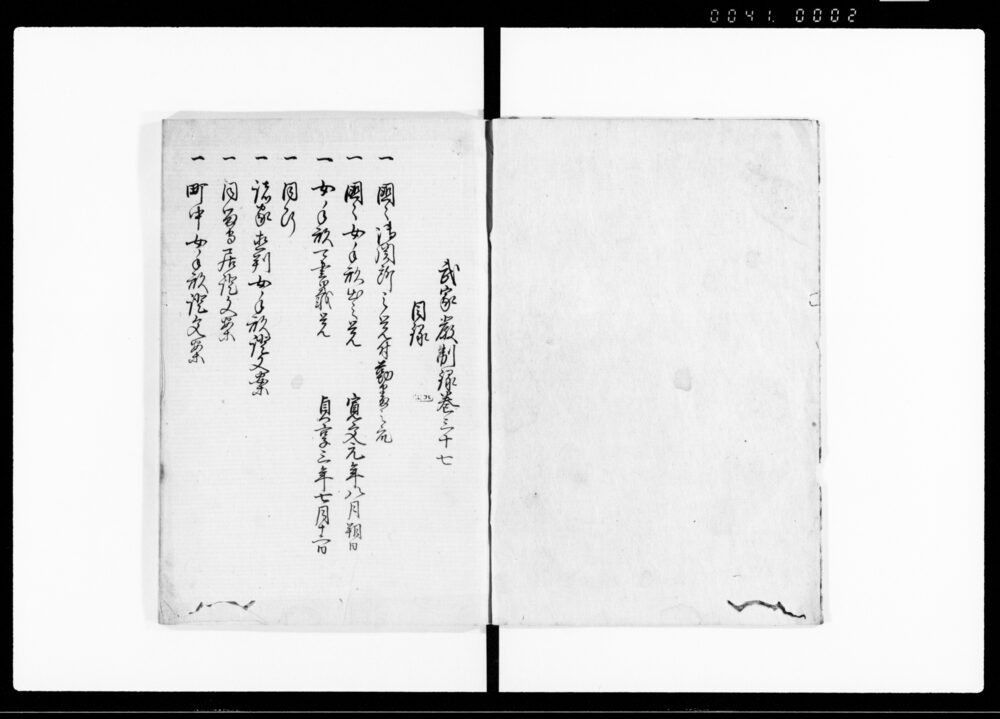 0041. 0002
武家嚴制録巻三十七
目録
一 國々御関所之覚付勤番之次第
一 國々女手形出之覚 寛文元年八月朔日
一 女手形可書載覚 貞享三年七月十一日
一 同断
一 諸家直判女手形證文案
一 同留守居證文案
一 町中女手形證文案